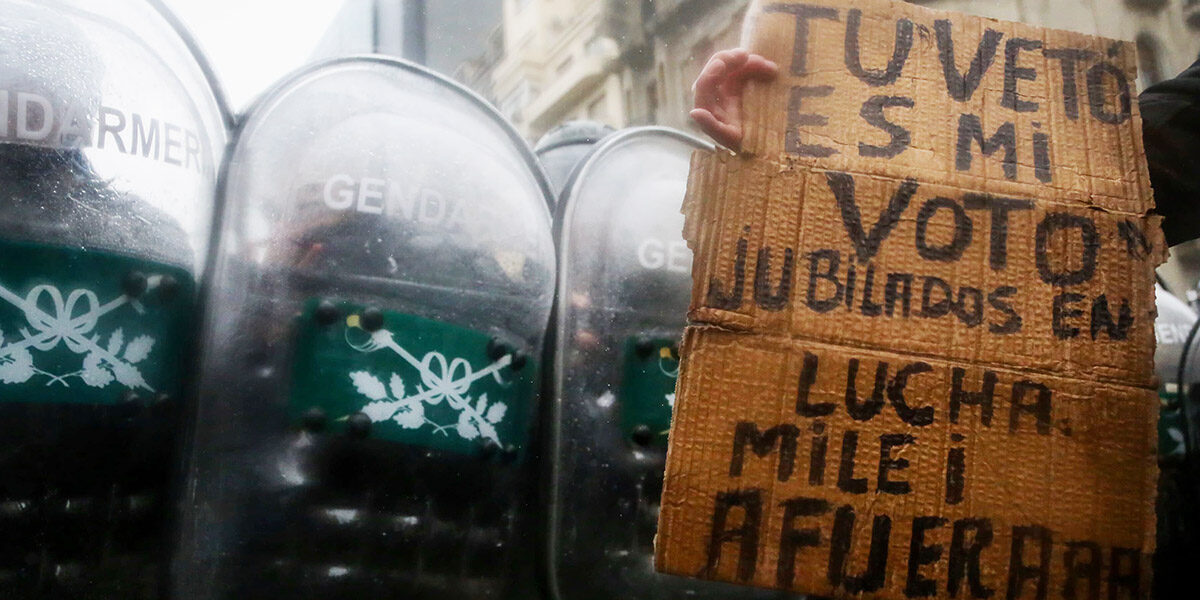 GENDARMER
GENDA
GE
TU "VETÓ
ES Mi
VOTO"
JUBiLADOS EN
LUCHA.
MiLEi
AFUERAAAA